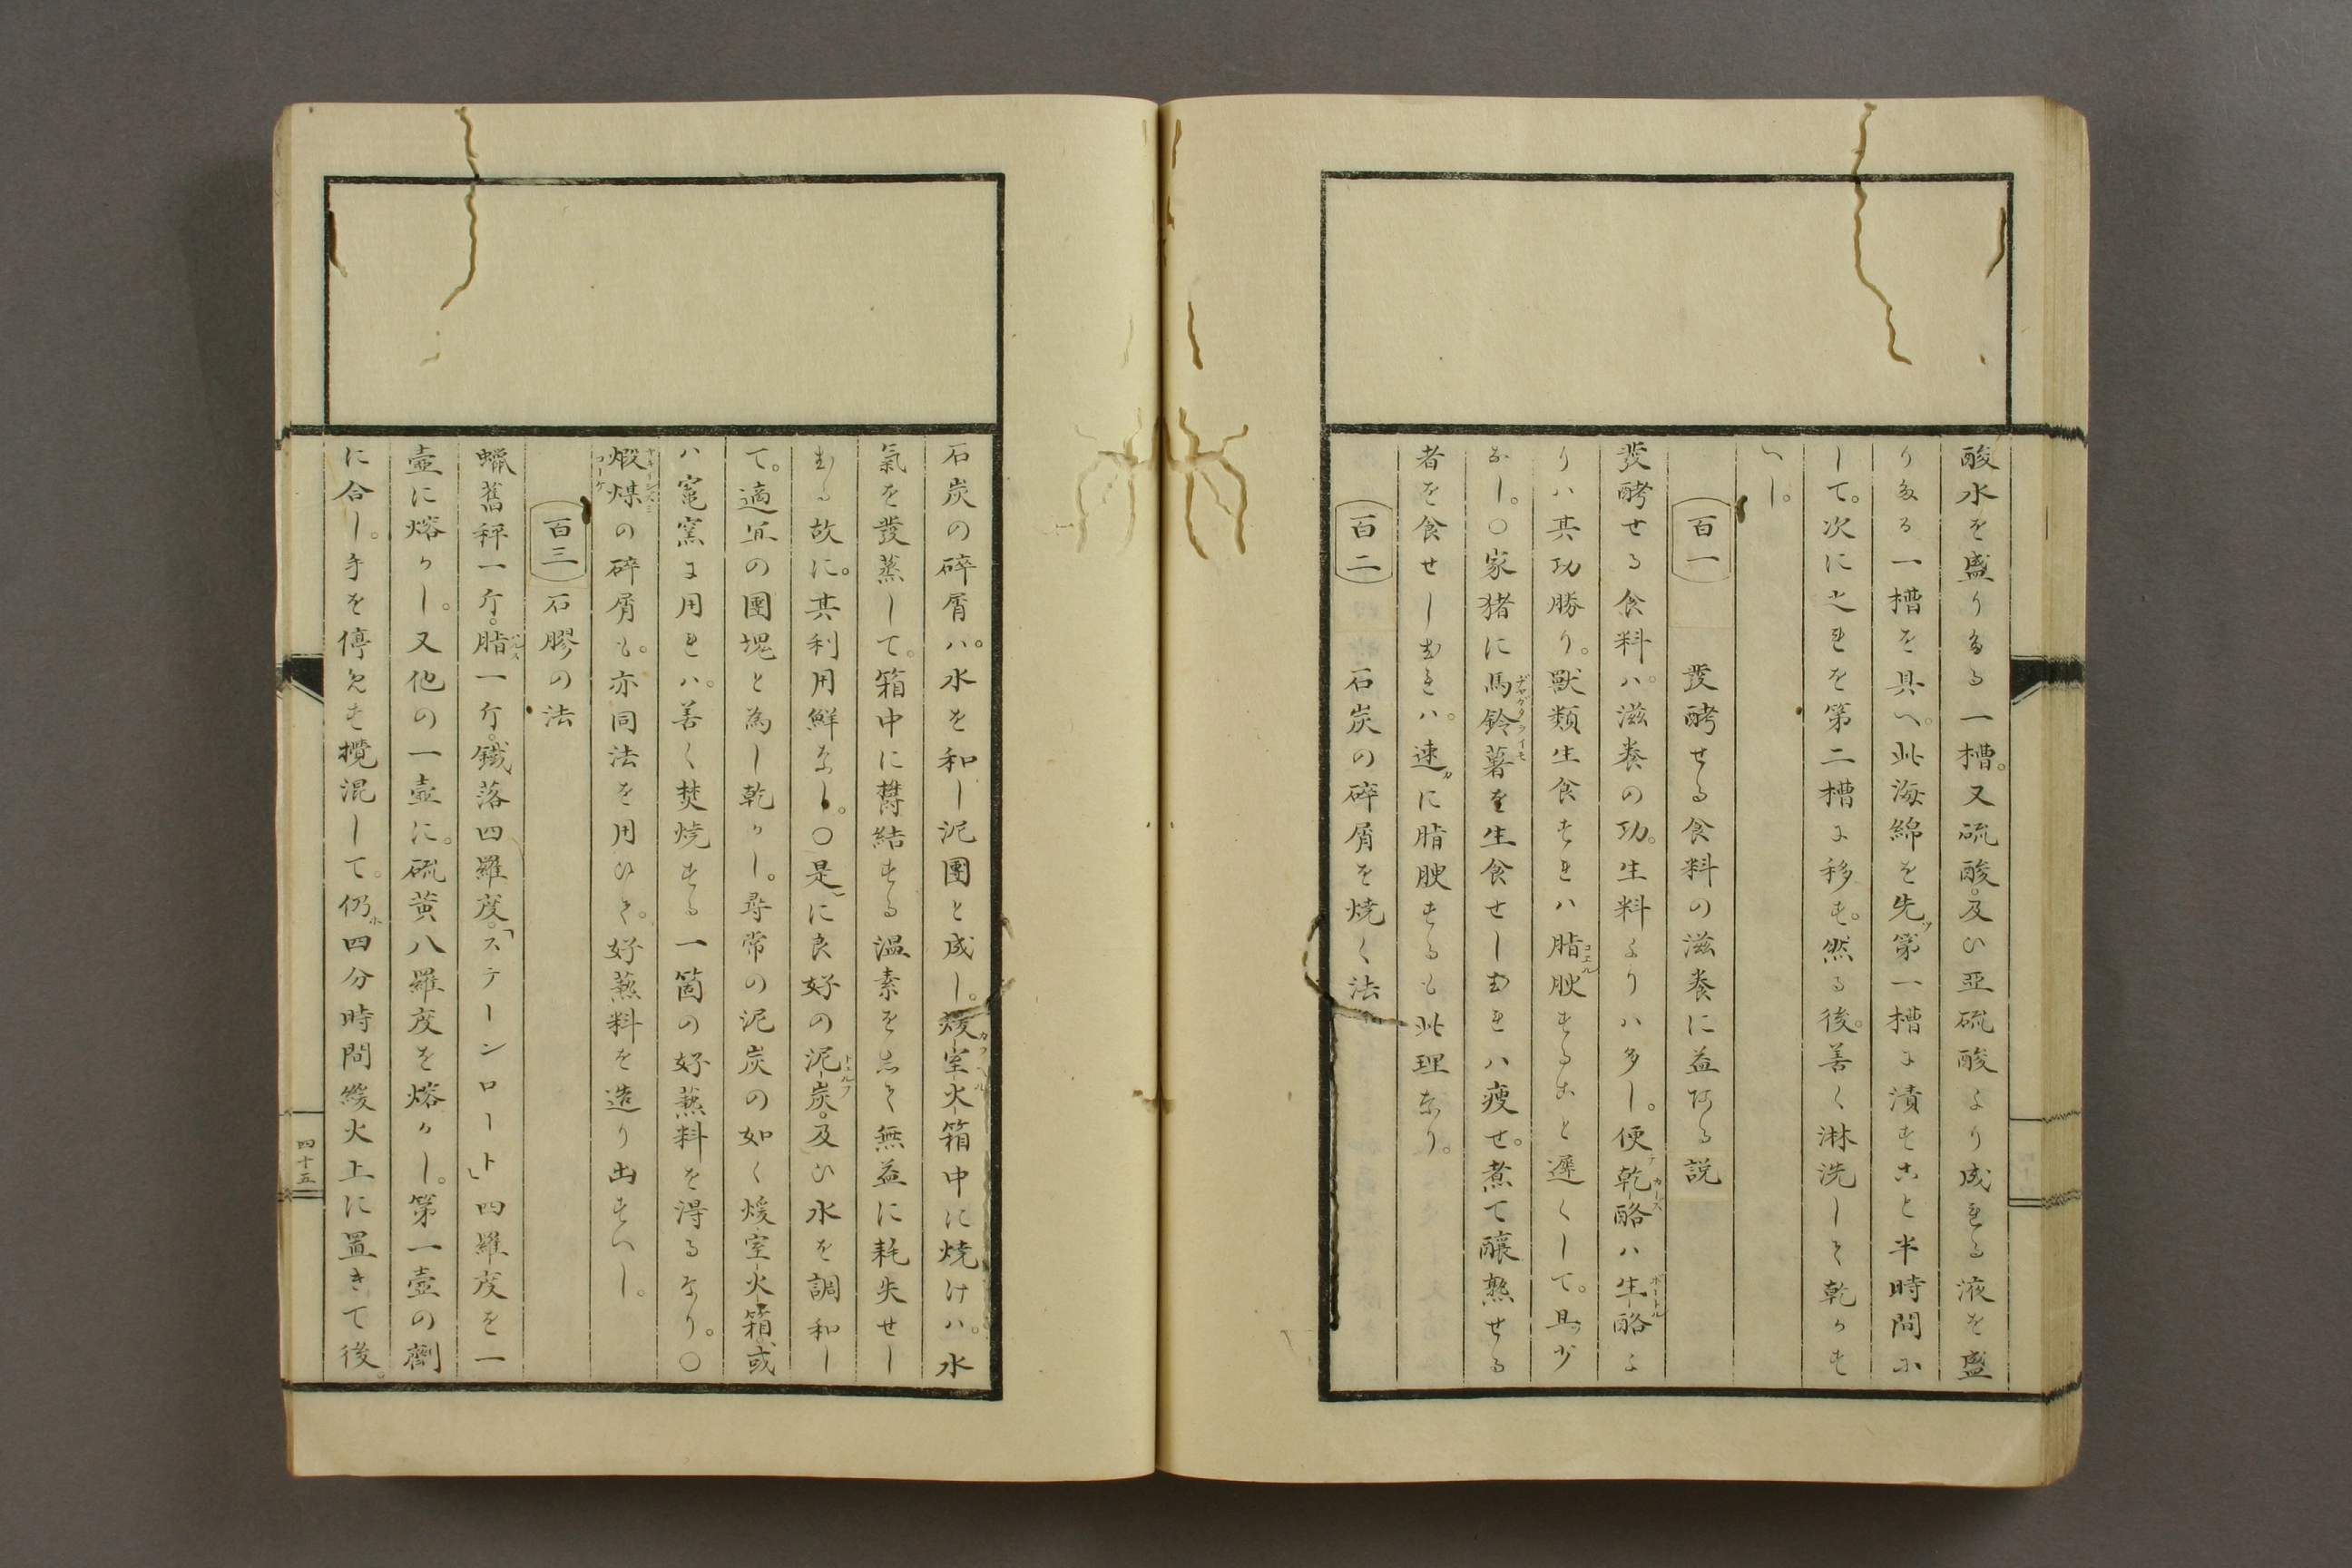 酸水を盛りたる一槽。又硫酸。及ひ亜硫酸より成れる液を盛
りたる一槽を具へ。此海綿を先ツ第一槽に漬すこと半時間に
して。次に之れを第二槽に移す。然る後。善く淋洗して乾かす
へし。
百一 發酵せる食料の滋養に益ある説
發酵せる食料ハ。滋養の功。生料よりハ多し。便チ乾酪ハ生酪よ
カース
ボートル
りハ其功勝り。獸類生食すれハ脂腴することと遅くして。且ツ少
コエル
なし。〇家猪に馬鈴薯を生食せしむれハ痩せ。煮て釀熟せる
ヂャガタライモ
者を食せしむれハ。速カに脂腴するも此理なり。
百二 石炭の碎屑を焼く法
石炭の碎屑ハ。水を和し泥團と成し。煖室火箱中に焼けハ。水
カッヘル
氣を發蒸して。箱中に欝結する温素をして無益に耗失せし
むる故に。其利用鮮なし。〇是ニに良好の泥炭。及ひ水を調和し
トルフ
て。適宜の團塊と為し乾かし。尋常の泥炭の如く煖室火箱。或
ハ竃窯に用れハ。善く焚焼する一箇の好燕料を得るなり。〇
煆煤の碎屑も。亦同法を用ひて。好燕料を造り出すへし。
コーケ
百三 石膠の法
蠟舊秤一斤。脂一斤。鐵落四羅度。「ステーンロート」四羅度を一
壺に熔かし。又他の一壺に。硫黄八羅度を熔かし。第一壺の劑
に合し。手を停めす攪混して。仍ホ四分時間緩火上に置きて後。
四十五